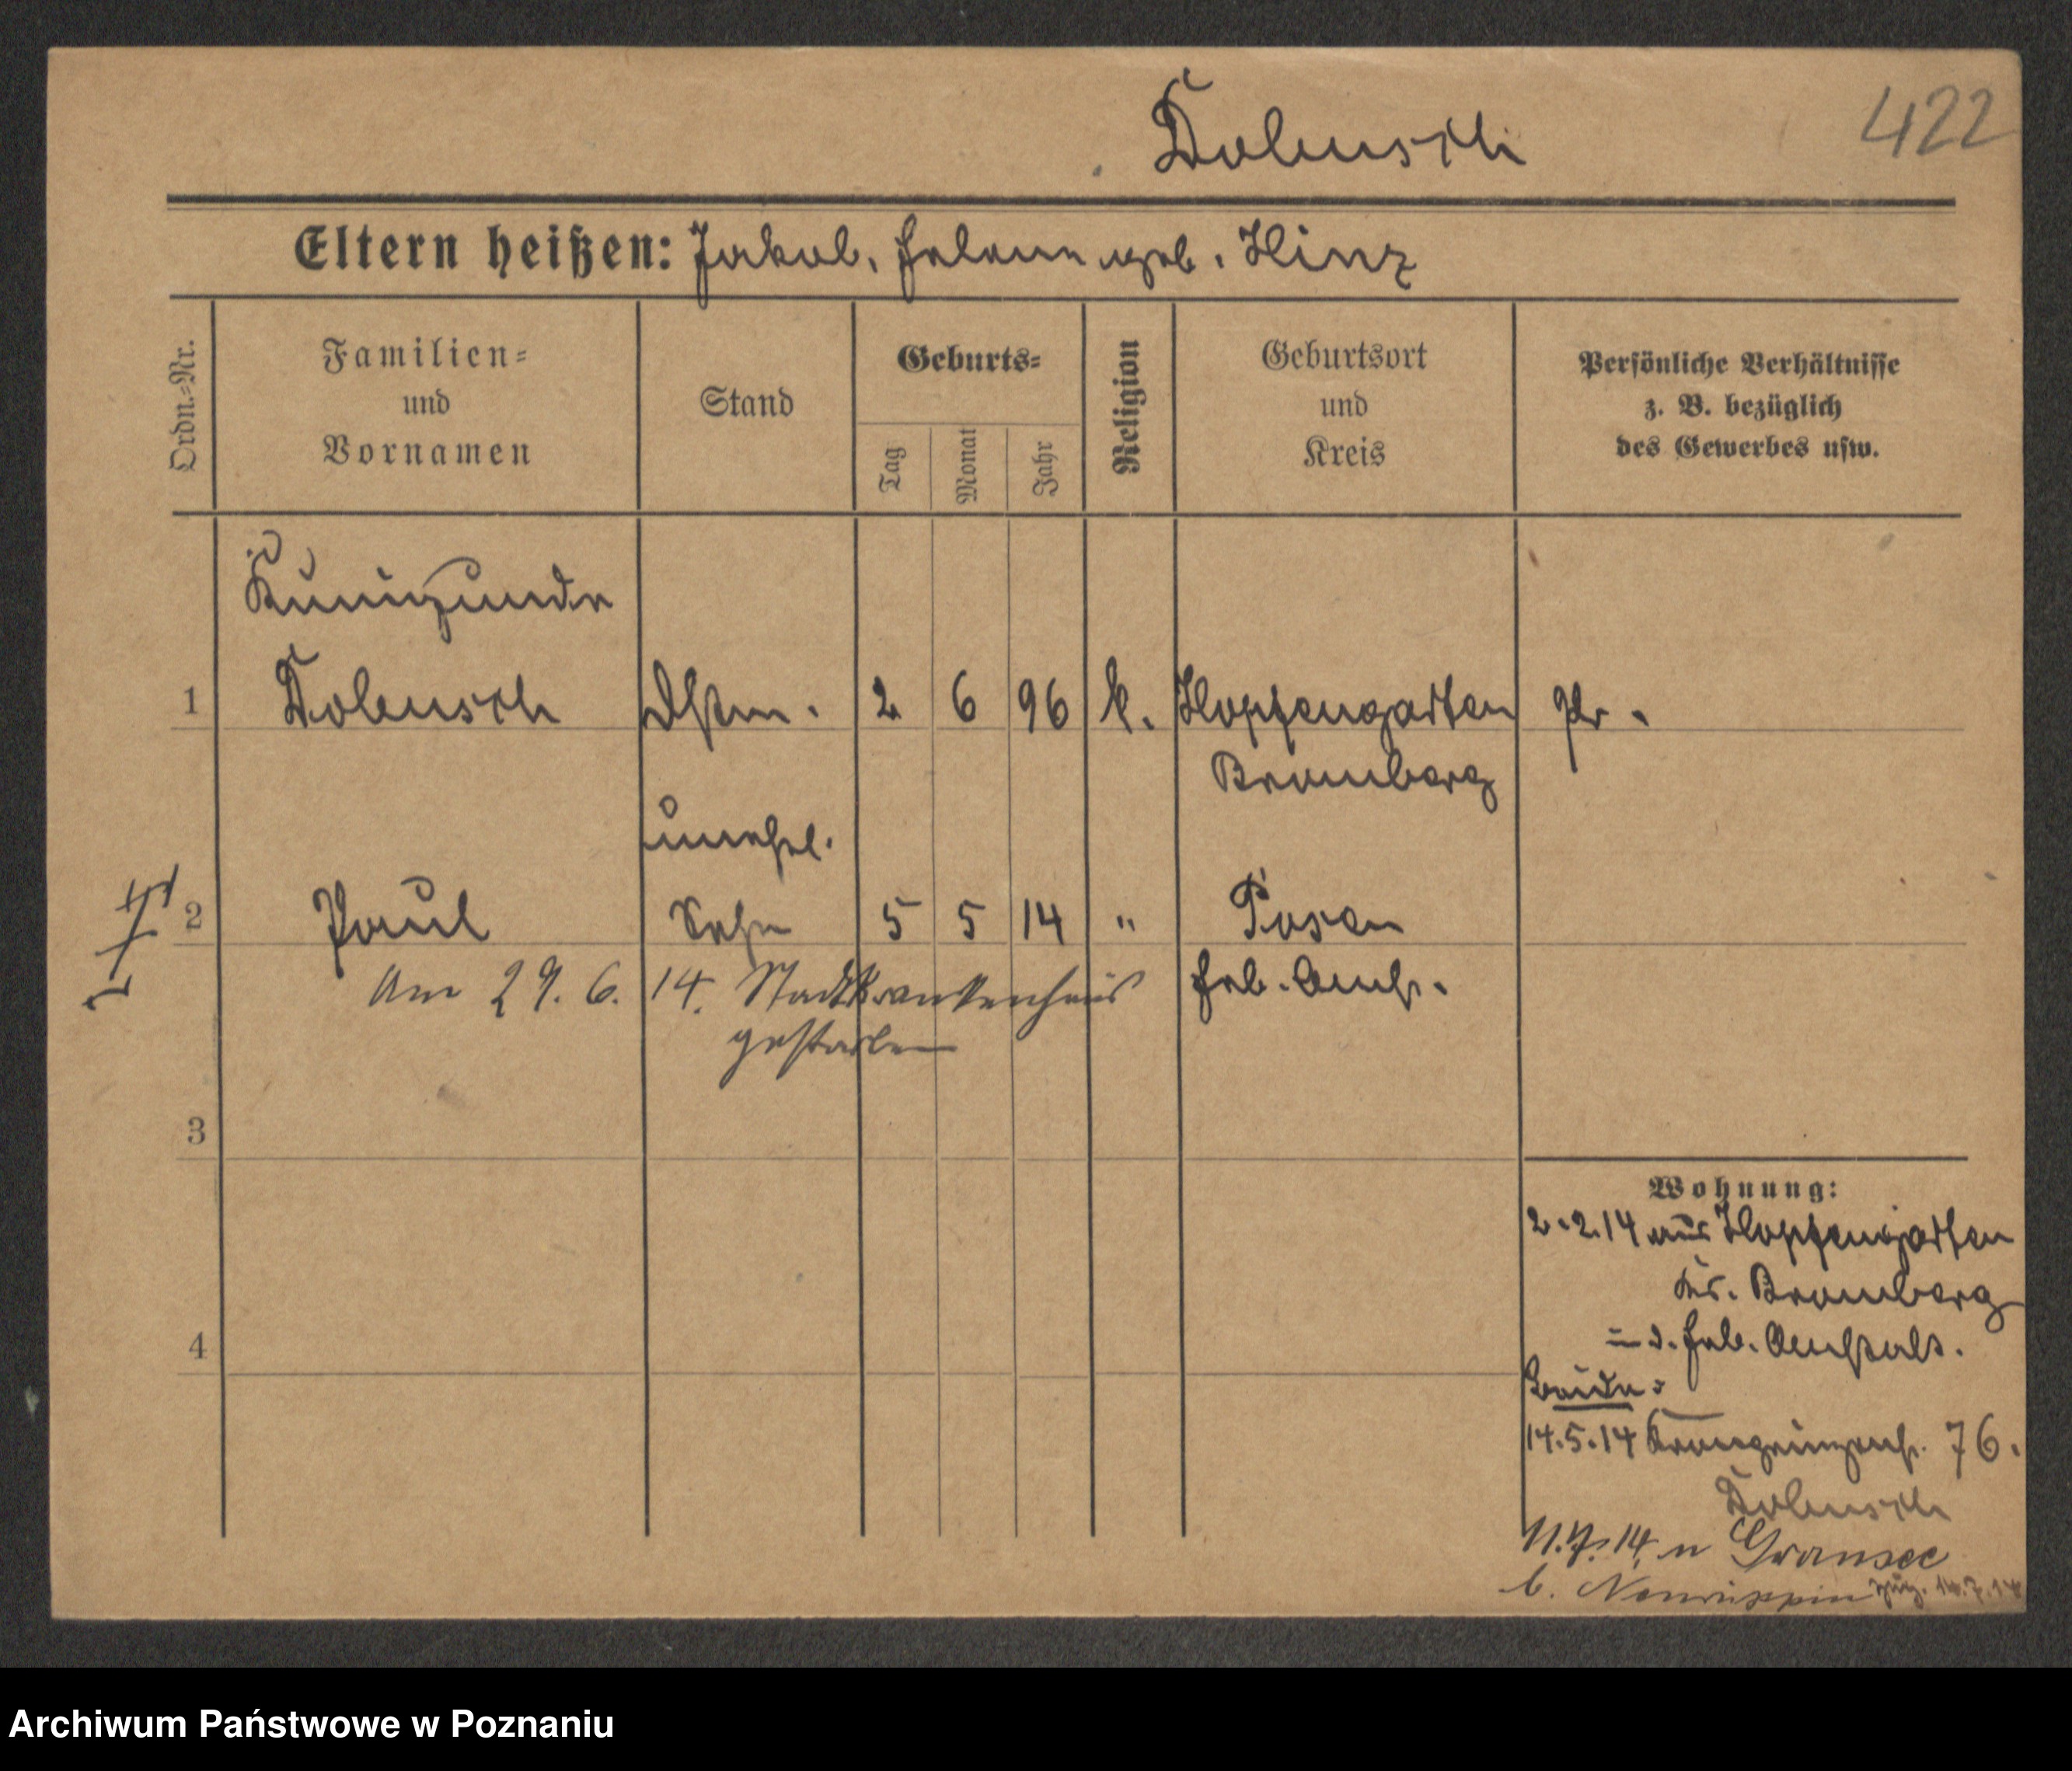 Dolensch
422
Eltern heißen: Jakob, Helene geb. Hinz
Ordn.-Nr.
Familien-
und
Vornamen
Stand
Geburts-
Tag
Monat
Jahr
Religion
Geburtsort
und
Kreis
Persönliche Verhältnisse
z. B. bezüglich
des Gewerbes usw.
Kunigunde
1 Dolensch Dstm. 2 6 96 k. Hopfengarten Pr.
Bromberg
unehel.
2 Paul Sohn 5 5 14 " Posen
Am 29. 6. 14. Stadtkrankenhaus Heb. Anst.
gestorben
3
4
Wohnung:
2.2.14 aus Hopfengarten
Kr. Bromberg
i. d. Heb. Anstalt.
Beide:
14.5.14 Kronprinzenst. 76.
Dolensch
11.7.14. n Gransee
b. Neuruppin zug. 14.7.14
Archiwum Państwowe w Poznaniu